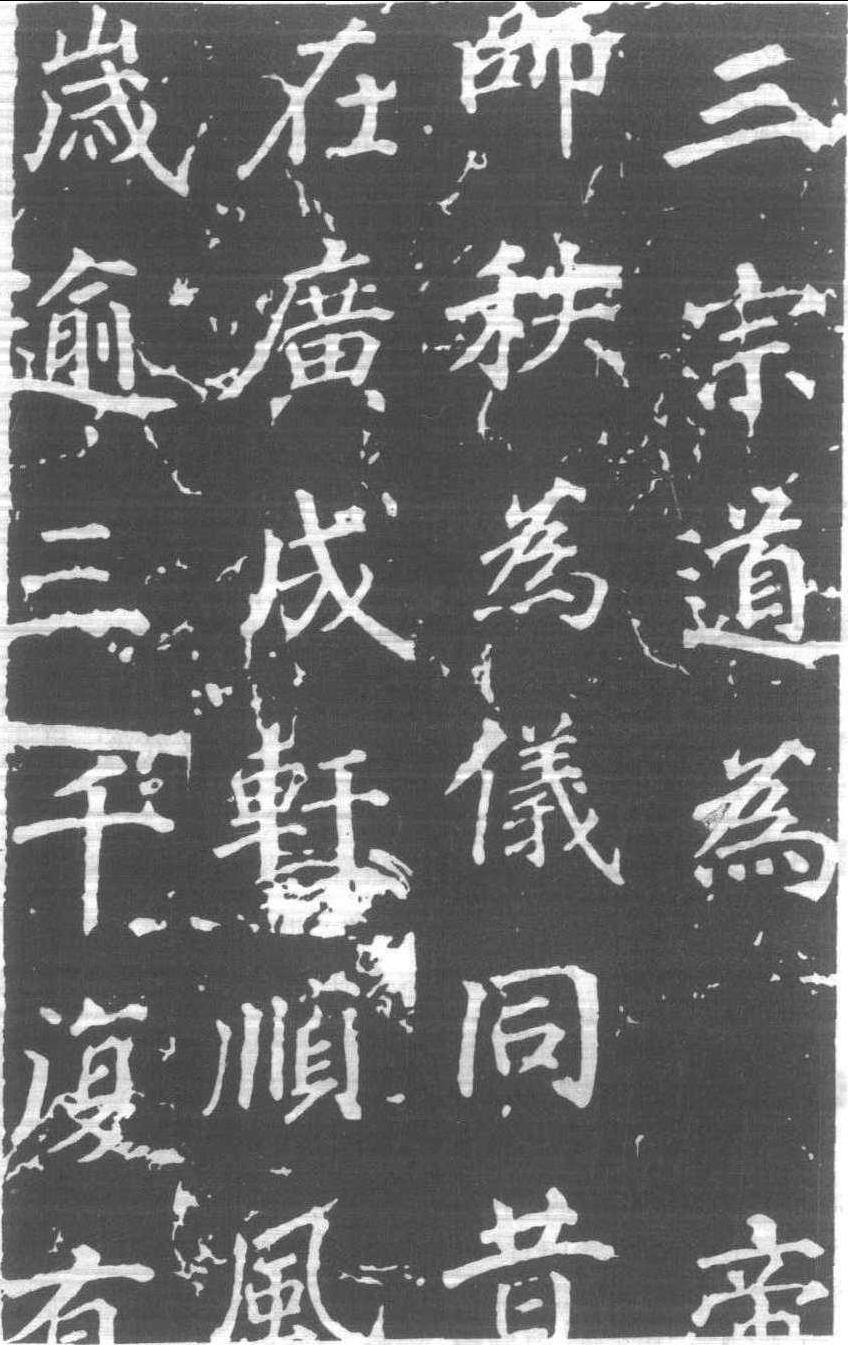 三宗道為帝
師秩為儀同昔
在廣成軒順風
歲逾三千復有